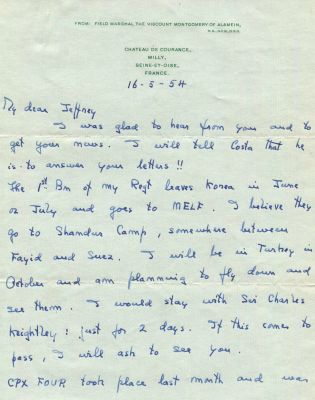 FROM: FIELD MARSHAL THE VISCOUNT MONTGOMERY OF ALAMEIN,
K.G., G.C.B., D.S.O.
CHATEAU DE COURANCE,
MILLY,
SEINE-ET-OISE,
FRANCE.
16-5-54
My dear Jeffrey
I was glad to hear from you and to
get your news. I will tell Costa that he
is to answer your letters!!
The 1st Bn of my Regt leaves Korea in June
or July and goes to MELF. I believe they
go to Shandur Camp, somewhere between
Fayid and Suez. I will be in Turkey in
October and am planning to fly down and
see them. I would stay with Sir Charles
Keightley: just for 2 days. If this comes to
pass, I will ask to see you.
CPX FOUR took place last month and was